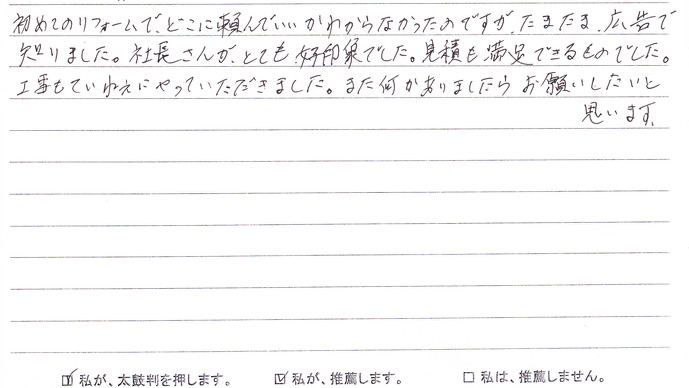 初めてのリフォームで、どこに頼んでいいかわからなかったのですが、たまたま、広告で
知りました。社長さんが、とても好印象でした。見積も満足できるものでした。
工事もていねえにやっていただきました。また何かありましたらお願いしたいと
思います。
☑ 私が、太鼓判を押します。 ☑ 私が、推薦します。 □ 私は、推薦しません。